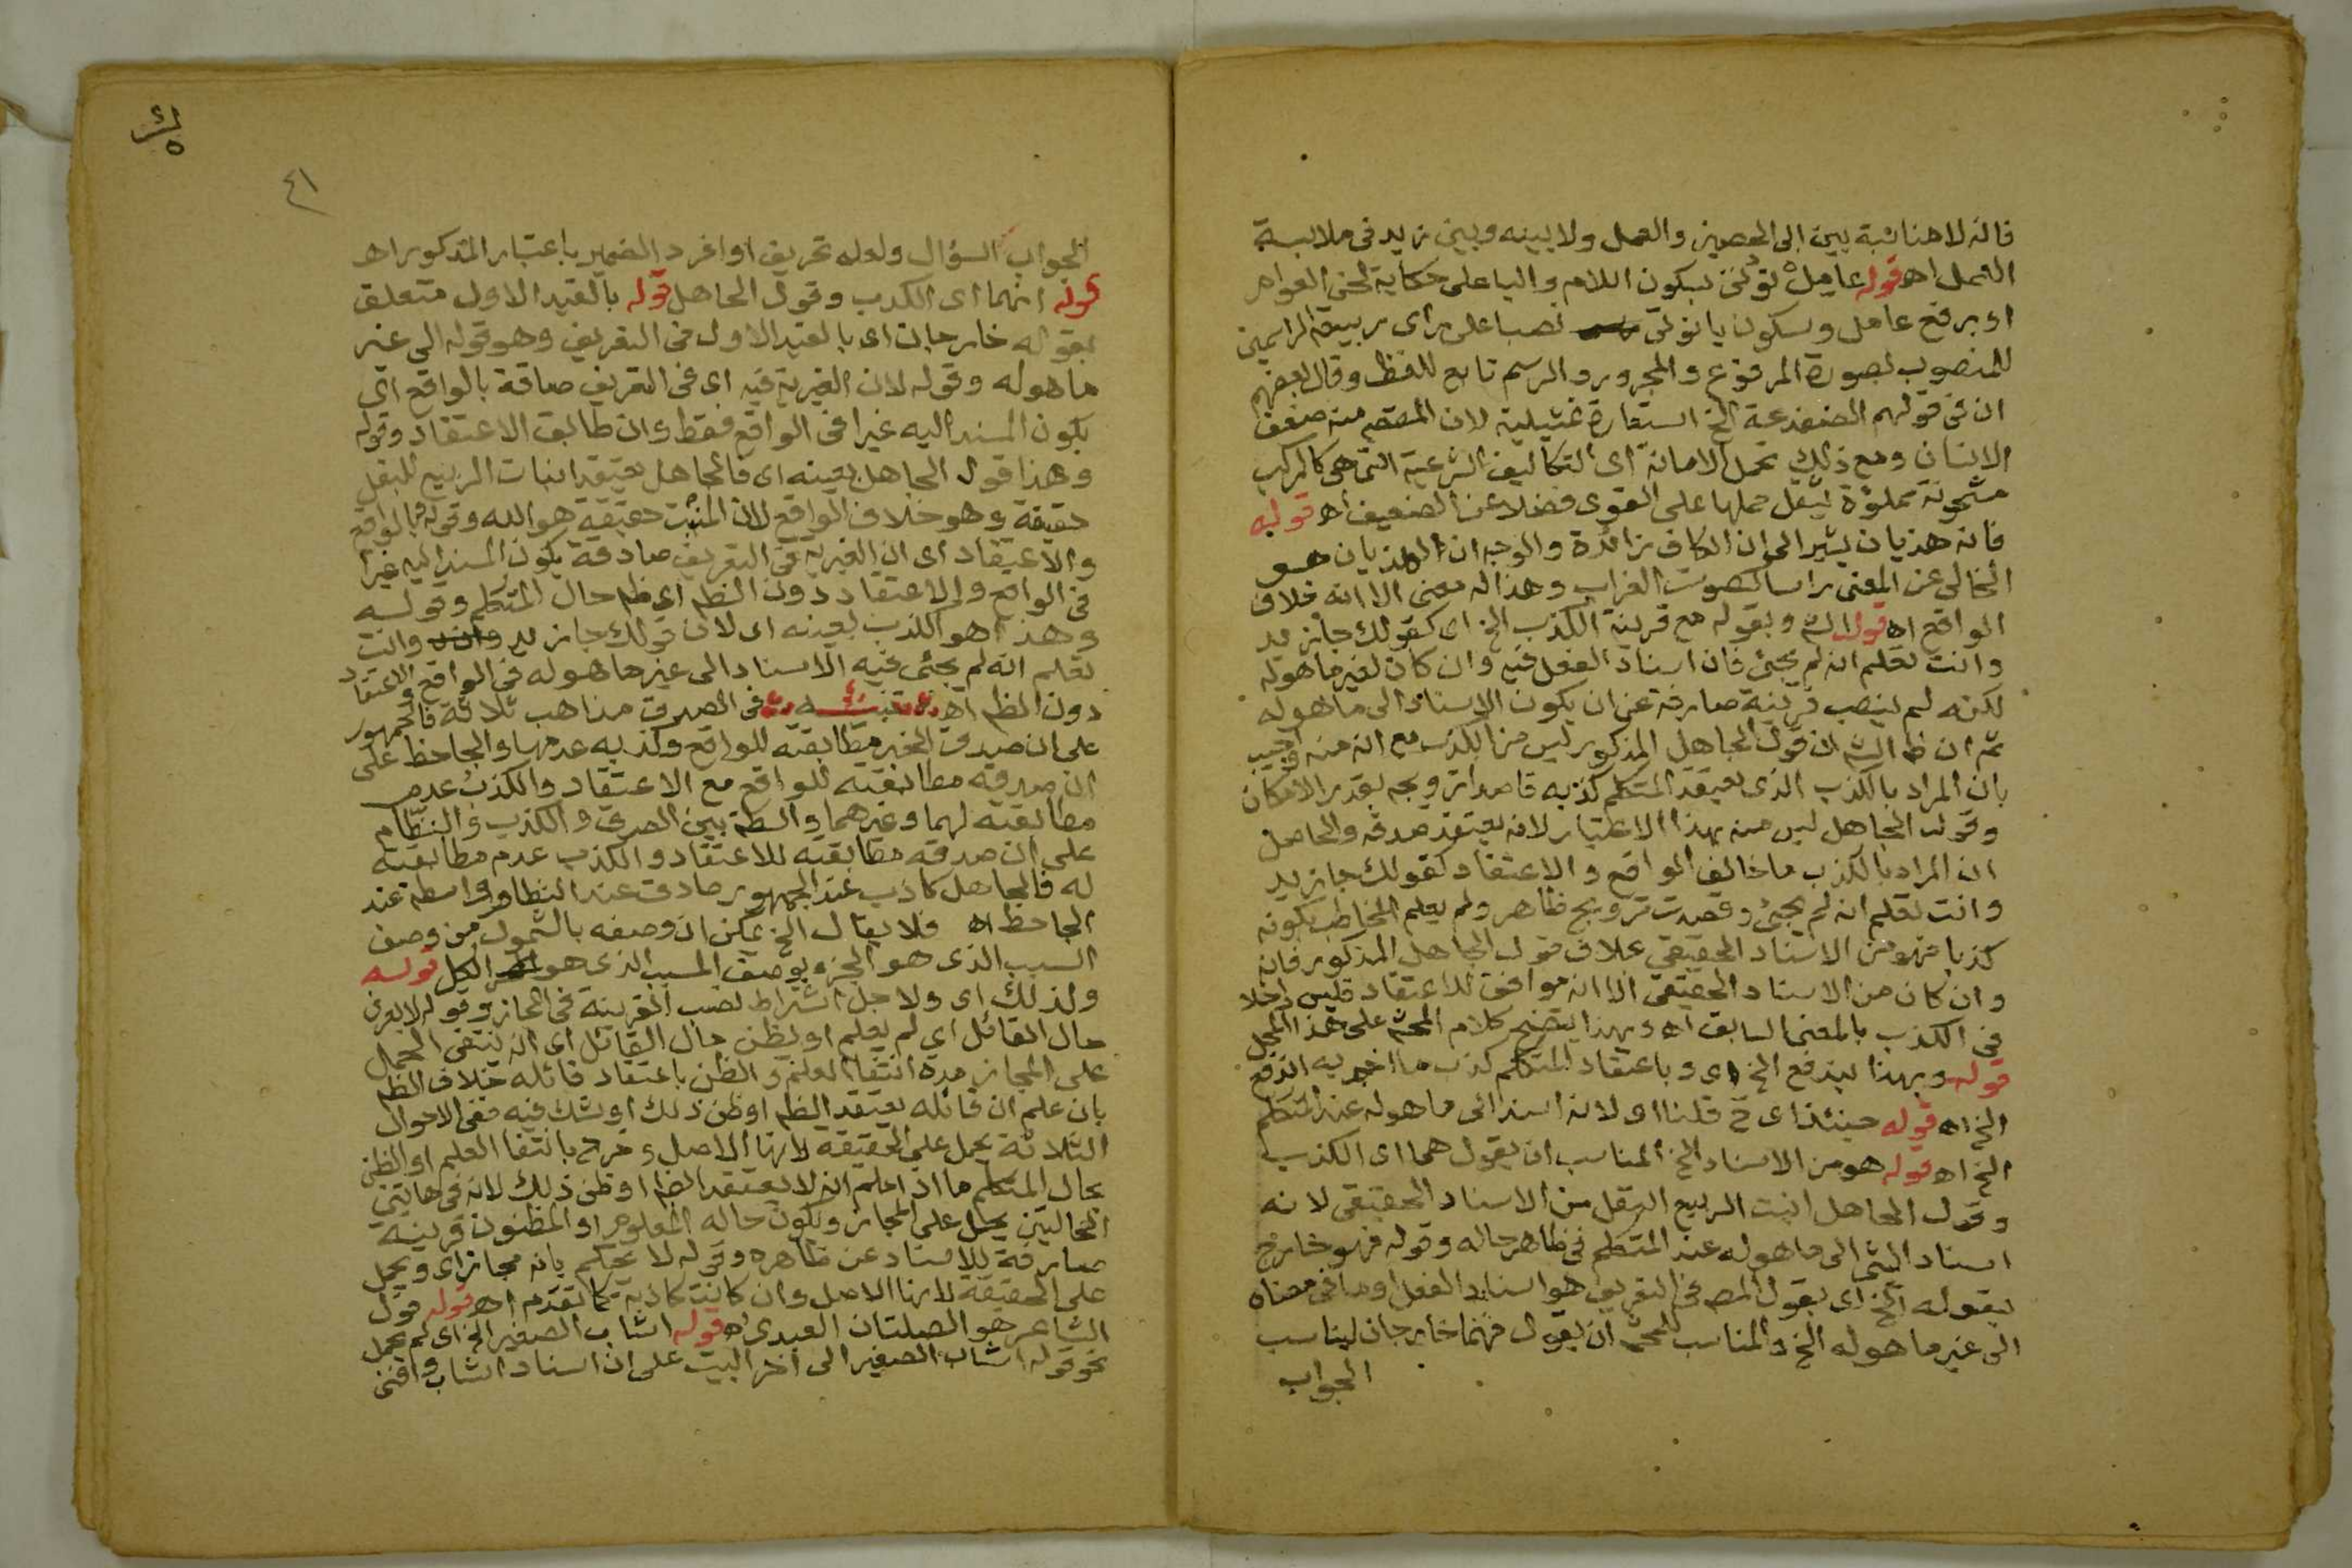 فانه لا مناسبة بين ابى الحصين والعمل ولا بينه وبين زيد فى ملابسة
العمل اه قوله عامل تولنى بسكون اللام واليا على حكاية لحن العوام
او برفع عامل وسكون يا تولى نصبا على راى ربيعة الراسمين
للمنصوب بصورة المرفوع والمجرور والرسم تابع للفظ وقال بعضهم
ان فى قولهم الضفدعة الخ استعارة تمثيلية لان المقصم منه ضعف
الانسان ومع ذلك تحمل الامانة اى التكاليف الشرعية التى هى كالمركب
مشحونة مملؤة ليثقل حملها على القوى فضلا عن الضعيف اه قوله
فانه هذيان يشير الى ان الكاف زائدة والوجه ان الهذيان هو
الخالى عن المعنى راسا كصوت الغراب وهذا له معنى الا انه خلاف
الواقع اه قوله الش وبقوله مع قرينة الكذب الخ اى كقولك جا زيد
وانت تعلم انه لم يجئ فان اسناد الفعل فيه وان كان لغير ما هوله
لكنه لم ينصب قرينة صارفة عن ان يكون الاسناد الى ما هوله
ثم ان ظ الش ان قول الجاهل المذكور ليس من الكذب مع انه منه واجيب
بان المراد بالكذب الذى يعتقد المتكلم كذبه قاصدا ترويجه بقدر الامكان
وقول الجاهل ليس منه بهذا الاعتبار لانه يعتقد صدقه والحاصل
ان المراد بالكذب ما خالف الواقع والاعتقاد كقولك جا زيد
وانت تعلم انه لم يجئ وقصدت ترويج ظاهر ولم يعلم المخاطب بكونه
كذبا فهو من الاسناد الحقيقي بخلاف قول الجاهل المذكور فانه
وان كان من الاسناد الحقيقى الا انه موافق للاعتقاد فليس داخلا
فى الكذب بالمعنى السابق اه وبهذا يتضح كلام المحشى على هذا المحل
قوله وبهذا يندفع الخ اى وباعتقاد المتكلم كذب ما اخبر به اندفع
الخ اه قوله حينئذ اى ح قلنا اى لانه اسند الى ما هوله عند المتكلم
الخ اه قوله هو من الاسناد الخ المناسب ان يقول هما اى الكذب
وقول الجاهل انبت الربيع البقل من الاسناد الحقيقى لانه
اسناد الشى الى ما هوله عند المتكلم فى ظاهر حاله وقوله فهو خارج
بقوله الخ اى بقول المص فى التعريف هو اسناد الفعل او ما فى معناه
الى غير ما هوله الخ والمناسب للمحشى ان يقول فهما خارجان ليناسب
الجواب
٤١
الجواب السؤال ولعله تحريف او افرد الضمير باعتبار المذكور اه
قوله انهما اى الكذب وقول الجاهل قوله بالقيد الاول متعلق
بقوله خارجان اى بالقيد الاول فى التعريف وهو قوله الى غير
ما هوله وقوله لان الغيرية فيه اى فى التعريف صادقة بالواقع اى
يكون المسند اليه غيرا فى الواقع فقط وان طابق الاعتقاد وقوله
وهذا قول الجاهل بعينه اى فالجاهل يعتقد انبات الربيع للبقل
حقيقة وهو خلاف الواقع لان المنبت حقيقة هو الله وقوله وبالواقع
والاعتقاد اى ان الغيرية فى التعريف صادقة بكون المسند اليه غيرا
فى الواقع والاعتقاد دون الظم اى ظم حال المتكلم وقوله
وهذا هو الكذب بعينه اى لان قولك جا زيد وانت
تعلم انه لم يجئى فيه الاسناد الى غير ما هوله فى الواقع والاعتقاد
دون الظم اه تنبيه فى الصدق مذاهب ثلاثة فالجمهور
على ان صدق الخبر مطابقته للواقع وكذبه عدمها والجاحظ على
ان صدقه مطابقته للواقع مع الاعتقاد والكذب عدم
مطابقته لهما وغيرهما واسطة بين الصدق والكذب والنظام
على ان صدقه مطابقته للاعتقاد والكذب عدم مطابقته
له فالجاهل كاذب عند الجمهور صادق عند النظام وواسطة عند
الجاحظ اه فلا يقال الخ يمكن ان وصفه بالشمول من وصف
السبب الذى هو الجزء بوصف المسبب الذى هو الكل قوله
ولذلك اى ولاجل اشتراط نصب القرينة فى المجاز وقوله لا يعرف
حال القائل اى لم يعلم او يظن حال القائل اى انه ينتفى الحمل
على المجاز مدة انتفا العلم والظن باعتقاد قائله خلاف الظم
بان علم ان قائله يعتقد الظم او ظن ذلك او شك فيه ففى الاحوال
الثلاثة يحمل على الحقيقة لانها الاصل وخرج بانتفا العلم او الظن
بحال المتكلم ما اذا علم انه لا يعتقد الظم او ظن ذلك لانه فى هاتين
الحالتين يحمل على المجاز ويكون حاله المعلوم او المظنون قرينة
صارفة للاسناد عن ظاهره وقوله لا يحكم بانه مجاز اى ويحمل
على الحقيقة لانها الاصل وان كانت كاذبة كما تقدم اه قوله قول
الشاعر هو الصلتان العبدى اه قوله اشاب الصغير الخ اى لم يحمل
نحو قوله اشاب الصغير الى اخر البيت على ان اسناد اشاب وافنى